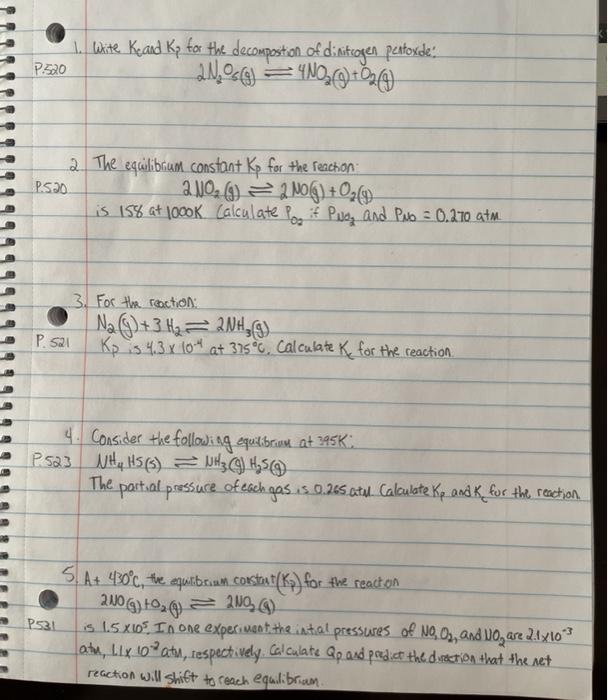 1. Write Kc and Kp for the decompostion of dinitrogen pentoxide:
P.520 2N₂O₅(g) ⇌ 4NO₂(g) + O₂(g)
2. The equilibrium constant Kp for the reaction:
P.520 2 NO₂ (g) ⇌ 2 NO(g) + O₂(g)
is 158 at 1000K Calculate P_O₂ if P_NO₂ and P_NO = 0.270 atm
3. For the reaction:
N₂(g) + 3 H₂ ⇌ 2NH₃(g)
P. 521 Kp is 4.3 x 10⁻⁴ at 375°C. Calculate Kc for the reaction.
4. Consider the following equilibrium at 395K:
P.523 NH₄HS(s) ⇌ NH₃(g) H₂S(g)
The partial pressure of each gas is 0.265 atm. Calculate Kp and Kc for the reaction.
5. At 430°C, the equilibrium constant (Kp) for the reaction
2NO(g) + O₂(g) ⇌ 2NO₂(g)
P531 is 1.5 x10⁵. In one experiment, the intial pressures of NO, O₂, and NO₂ are 2.1x10⁻³
atm, 1.1x 10⁻² atm, respectively. Calculate Qp and predict the direction that the net
reaction will shift to reach equilibrium.